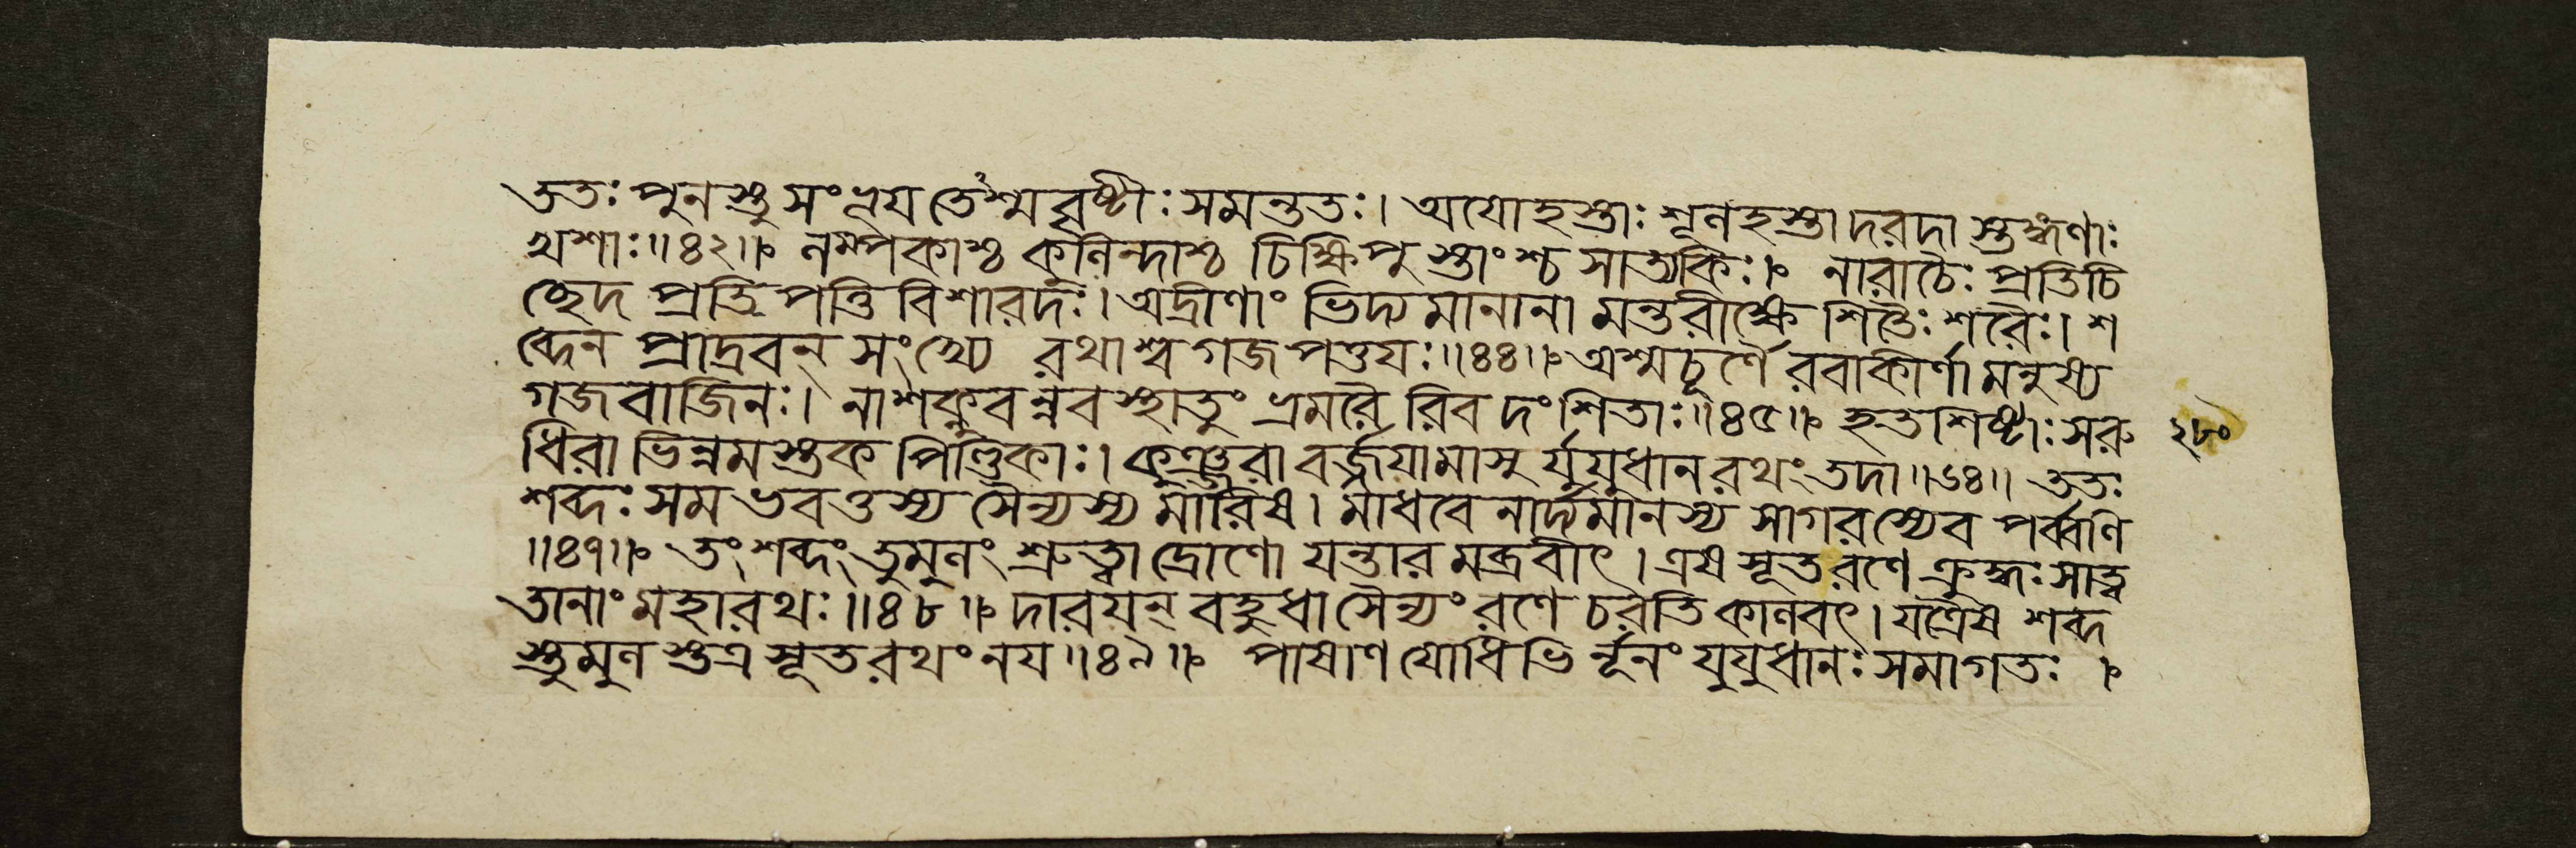 ততঃ পুনস্তু সংপ্লুয তেশ্মবৃষ্টীঃ সমন্ততঃ। অযোহস্তাঃ শূলহস্তা দরদা স্তঙ্গণাঃ
খশাঃ॥৪২॥ লম্পকাশ্চ কুলিন্দাশ্চ চিক্ষিপু স্তাংশ্চ সাত্যকিঃ। নারাচৈঃ প্রতিচি
চ্ছেদ প্রতিপত্তি বিশারদঃ। অদ্রীণাং ভিদ্যমানানা মন্তরীক্ষে শিতৈঃ শরৈঃ। শ
ব্দেন প্রাদ্রবন্ সংখ্যে রথাশ্বগজপত্তযঃ॥৪৪॥ অশ্মচূর্ণৈ রবাকীর্ণা মনুষ্য
গজবাজিনঃ। নাশক্নুবন্নবস্থাতুং ভ্রমরৈ রিব দংশিতাঃ॥৪৫॥ হতশিষ্টাঃ সরু
ধিরা ভিন্নমস্তক পিণ্ডিকাঃ। কুঞ্জরা বর্জ্জয়ামাসু র্যুযুধানরথং তদা॥৬৪॥ ততঃ
শব্দঃ সমভবত্তস্য সৈন্যস্য মারিষ। মাধবেনার্দ্যমানস্য সাগরস্যেব পর্ব্বণি
॥৪৭॥ তং শব্দং তুমুলং শ্রুত্বা দ্রোণো যন্তার মব্রবীৎ। এষ সূত রণে ক্রুদ্ধঃ সাত্ব
তানাং মহারথঃ॥৪৮॥ দারযন্ বহুধা সৈন্যং রণে চরতি কালবৎ। যত্রৈষ শব্দ
স্তুমুল স্তত্র সূত রথং নয॥৪৯॥ পাষাণযোধিভি র্নূনং যুযুধানঃ সমাগতঃ।
২৮০